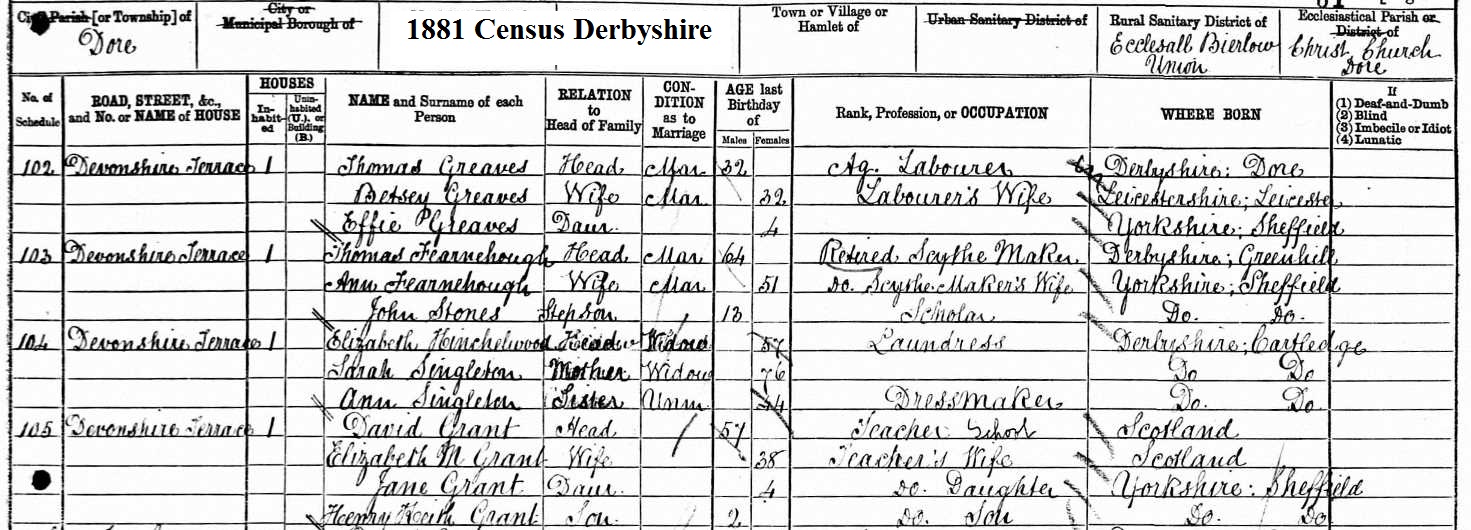 City or
Town or Village or
Ecclesiastical Parish or
City Parish [or Township] of
Municipal Borough of
1881 Census Derbyshire
Hamlet of
Urban Sanitary District of
Rural Sanitary District of
District of
Dore
Ecclesall Bierlow
Union
Christ Church
Dore
No. of Schedule
ROAD, STREET, &c., and No. or NAME of HOUSE
HOUSES
In-habit-ed
Unin-habited (U.), or Building (B.)
NAME and Surname of each Person
RELATION to Head of Family
CON-DITION as to Marriage
AGE last Birthday of
Males
Females
Rank, Profession, or OCCUPATION
WHERE BORN
If
(1) Deaf-and-Dumb
(2) Blind
(3) Imbecile or Idiot
(4) Lunatic
102 Devonshire Terrace 1 Thomas Greaves Head Mar 32 Ag. Labourer Derbyshire: Dore
Betsey Greaves Wife Mar 32 Labourer's Wife Leicestershire; Leicester
Effie P Greaves Daur. 4 Yorkshire; Sheffield
103 Devonshire Terrace 1 Thomas Fearnehough Head Mar 64 Retired Scythe Maker Derbyshire; Greenhill
Ann Fearnehough Wife Mar 51 Do. Scythe Maker's Wife Yorkshire; Sheffield
John Stones Stepson 13 Scholar Do. Do.
104 Devonshire Terrace 1 Elizabeth Hinchelwood Head Widow 57 Laundress Derbyshire; Cartledge
Sarah Singleton Mother Widow 76 Do Do
Ann Singleton Sister Unm 54 Dressmaker Do. Do.
105 Devonshire Terrace 1 David Grant Head 57 Teacher School Scotland
Elizabeth M Grant Wife 38 Teacher's Wife Scotland
Jane Grant Daur. 4 Do. Daughter Yorkshire: Sheffield
Henry Keith Grant Son 2 Do. Son Do. Do.